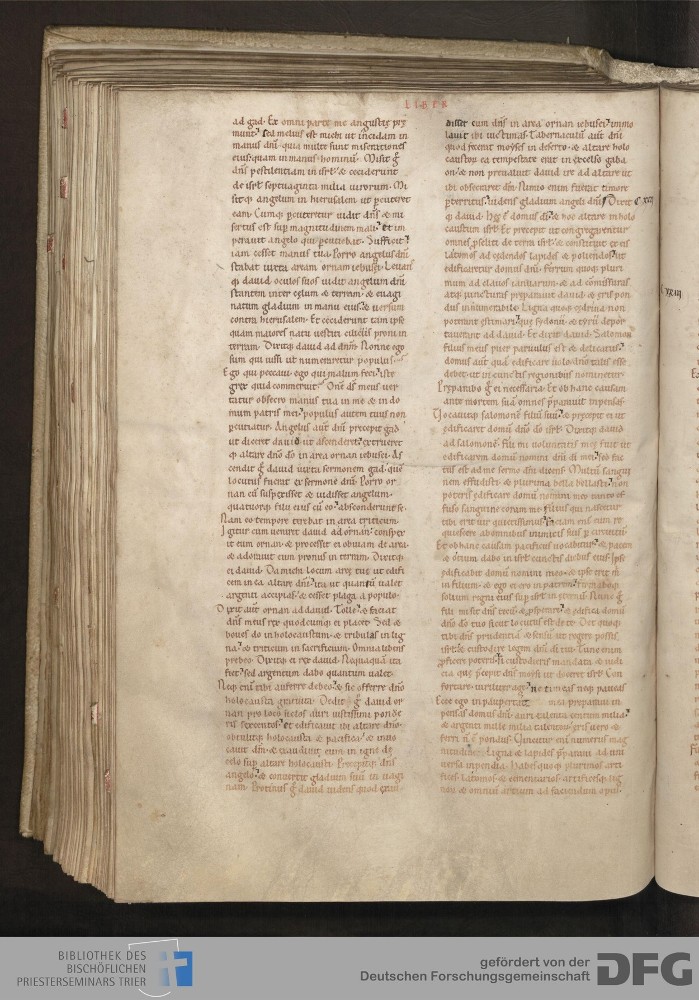 LIBER
ad gad. Ex omni parte me angustie pre
munt. sed melius est michi ut incidam in
manus dñi. quia multe sunt miserationes
eius. quam in manus hominũ. Misit g̃
dñs pestilentiam in isrl. & ceciderunt
de isrl septuaginta milia virorum. Mi
sitq; angelum in hierusalem ut percuteret
eam. Cumq; percuteretur vidit dñs & mi
sertus est sup magnitudinem mali. Et im
peravit angelo qui percutiebat. Sufficit.
iam cesset manus tua. Porro angelus dñi
stabat iuxta aream ornam iebusei. Levans
q; david oculos suos vidit angelum dñi
stantem inter celum & terram. & evagi
natum gladium in manu eius. & versum
contra hierusalem. Et ceciderunt tam ipse
quam maiores natu vestiti ciliciis proni in
terram. Dixitq; david ad dñm. Nonne ego
sum qui iussi ut numeraretur populus.
Ego qui peccavi. ego qui malum feci. iste
grex quid commeruit. Dñe ds meus ver
tatur obsecro manus tua in me & in do
mum patris mei. populus autem tuus non
percutiatur. Angelus aut dñi precepit gad
ut diceret david ut ascenderet. extrueret
q; altare dño do in area ornan iebusei. As
cendit g̃ david iuxta sermonem gad. quẽ
locutus fuerat ex sermone dñi. Porro or
nan cũ suspexisset & vidisset angelum.
quatuorq; filii eius cũ eo. absconderunt se.
Nam eo tempore terebat in area triticum.
Igitur cum veniret david ad ornan. conspex
it eum ornan. & processit ei obviam de area.
& adoravit eum pronus in terram. Dixitq;
ei david. Da michi locum aree tue ut edifi
cem in ea altare dñi. ita ut quantũ valet
argenti accipias. & cesset plaga a populo.
Dixit aut ornan ad david. Tolle. & faciat
dñs meus rex quodcumq; ei placet. Sed &
boves do in holocaustum. & tribulas in lig
na. & triticum in sacrificium. Omnia libens
prebeo. Dixitq; ei rex david. Nequaquã ita
fiet. sed argentum dabo quantum valet.
Neq; eni tibi auferre debeo. & sic offerre dño
holocausta gratuita. Dedit g̃ david or
nan pro loco siclos auri iustissimi ponde
ris sexcentos. et edificavit ibi altare dño.
obtulitq; holocausta & pacifica. & invo
cavit dñm. & exaudivit eum in igne de
celo sup altare holocausti. Precepitq; dñs
angelo. & convertit gladium suũ in vagi
nam. Protinus g̃ david videns quod exau
disset eum dñs in area ornan iebusei. immo
lavit ibi victimas. Tabernaculũ aut dñi
quod fecerat moyses in deserto. & altare holo
caustorũ ea tempestate erat in excelso gaba
on. & non prevaluit david ire ad altare ut
ibi obsecraret dm. Nimio enim fuerat timore
perterritus. videns gladium angeli dñi. Dixit
q; david. Hec ẽ domus di. & hoc altare in holo
caustum isrl. Et precepit ut congregarentur
omnes proseliti de terra isrl. & constituit ex eis
latomos ad cedendos lapides & poliendos. ut
edificaretur domus dñi. Ferrum quoq; pluri
mum ad clavos ianuarum. & ad commissuras
atq; iuncturas preparavit david. & eris pon
dus innumerabile. Ligna quoq; cedrina non
poterant estimari. que sydonii & tyrii depor
taverant ad david. Et dixit david. Salomon
filius meus puer parvulus est & delicatus.
domus aut quã edificare volo dño talis esse
debet. ut in cunctis regionibus nominetur.
Preparabo g̃ ei necessaria. Et ob hanc causam
ante mortem suã omnes preparavit impensas.
Vocavitq; salomonẽ filiũ suũ. & precepit ei ut
edificaret domũ dño do isrl. Dixitq; david
ad salomonẽ. Fili mi voluntatis mee fuit ut
edificarem domũ nomini dñi di mei. sed fac
tus est ad me sermo dñi dicens. Multũ sangui
nem effudisti. & plurima bella bellasti. non
poteris edificare domũ nomini meo tanto ef
fuso sanguine coram me. Filius qui nascetur
tibi erit vir quietissimus. Faciam enĩ eum re
quiescere ab omnibus inimicis suis p circuitũ.
Et ob hanc causam pacificus vocabitur. & pacem
& otium dabo in isrl cunctis diebus eius. Ipse
edificabit domũ nomini meo. & ipse erit m̃
in filium. & ego ei ero in patrem. firmaboq;
solium regni eius sup isrl in eternũ. Nunc g̃
fili mi sit dñs tecũ. & prosperare. & edifica domũ
dño do tuo sicut locutus est de te. Det quoq;
tibi dñs prudentiã & sensũ ut regere possis
isrl. & custodire legem dñi di tui. Tunc enim
proficere poteris. si custodieris mandata & iudi
cia que precepit dñs moysi ut doceret isrl. Con
fortare. viriliter age. ne timeas neq; paveas.
Ecce ego in paupertate mea preparavi im
pensas domus dñi. auri talenta centum milia.
& argenti mille milia talentorũ. eris vero & 
ferri nõ ẽ pondus. Vincitur enĩ numerus mag
nitudine. Ligna & lapides preparavi ad uni
versa impendia. Habes quoq; plurimos arti
fices. latomos & cementarios. artificesq; lig
norũ & omniũ artium ad faciendum opus.
BIBLIOTHEK DES
BISCHÖFLICHEN
PRIESTERSEMINARS TRIER
gefördert von der
Deutschen Forschungsgemeinschaft
DFG